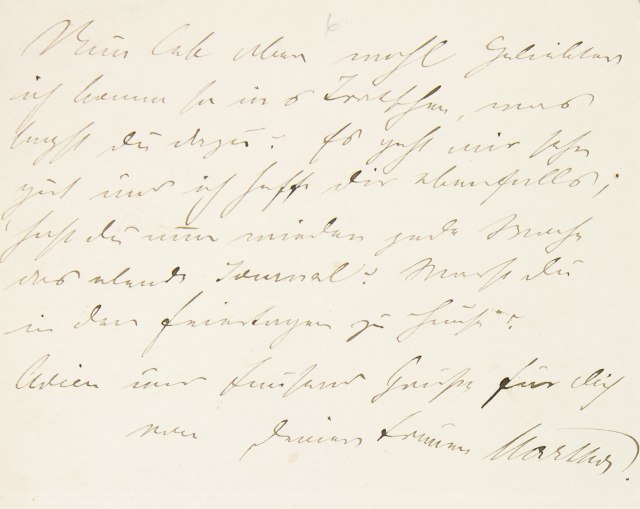 6
Nun leb aber wohl Geliebter
ich komm ja ins
sagst du dazu? Es geht mir sehr
gut und ich hoffe dir ebenfalls;
hast du nun wieder jede Woche
das abends Journal? Warst du
in den Feiertagen zu Hause?
Adieu und tausend Grüße für dich
von Deiner treuen Martha.